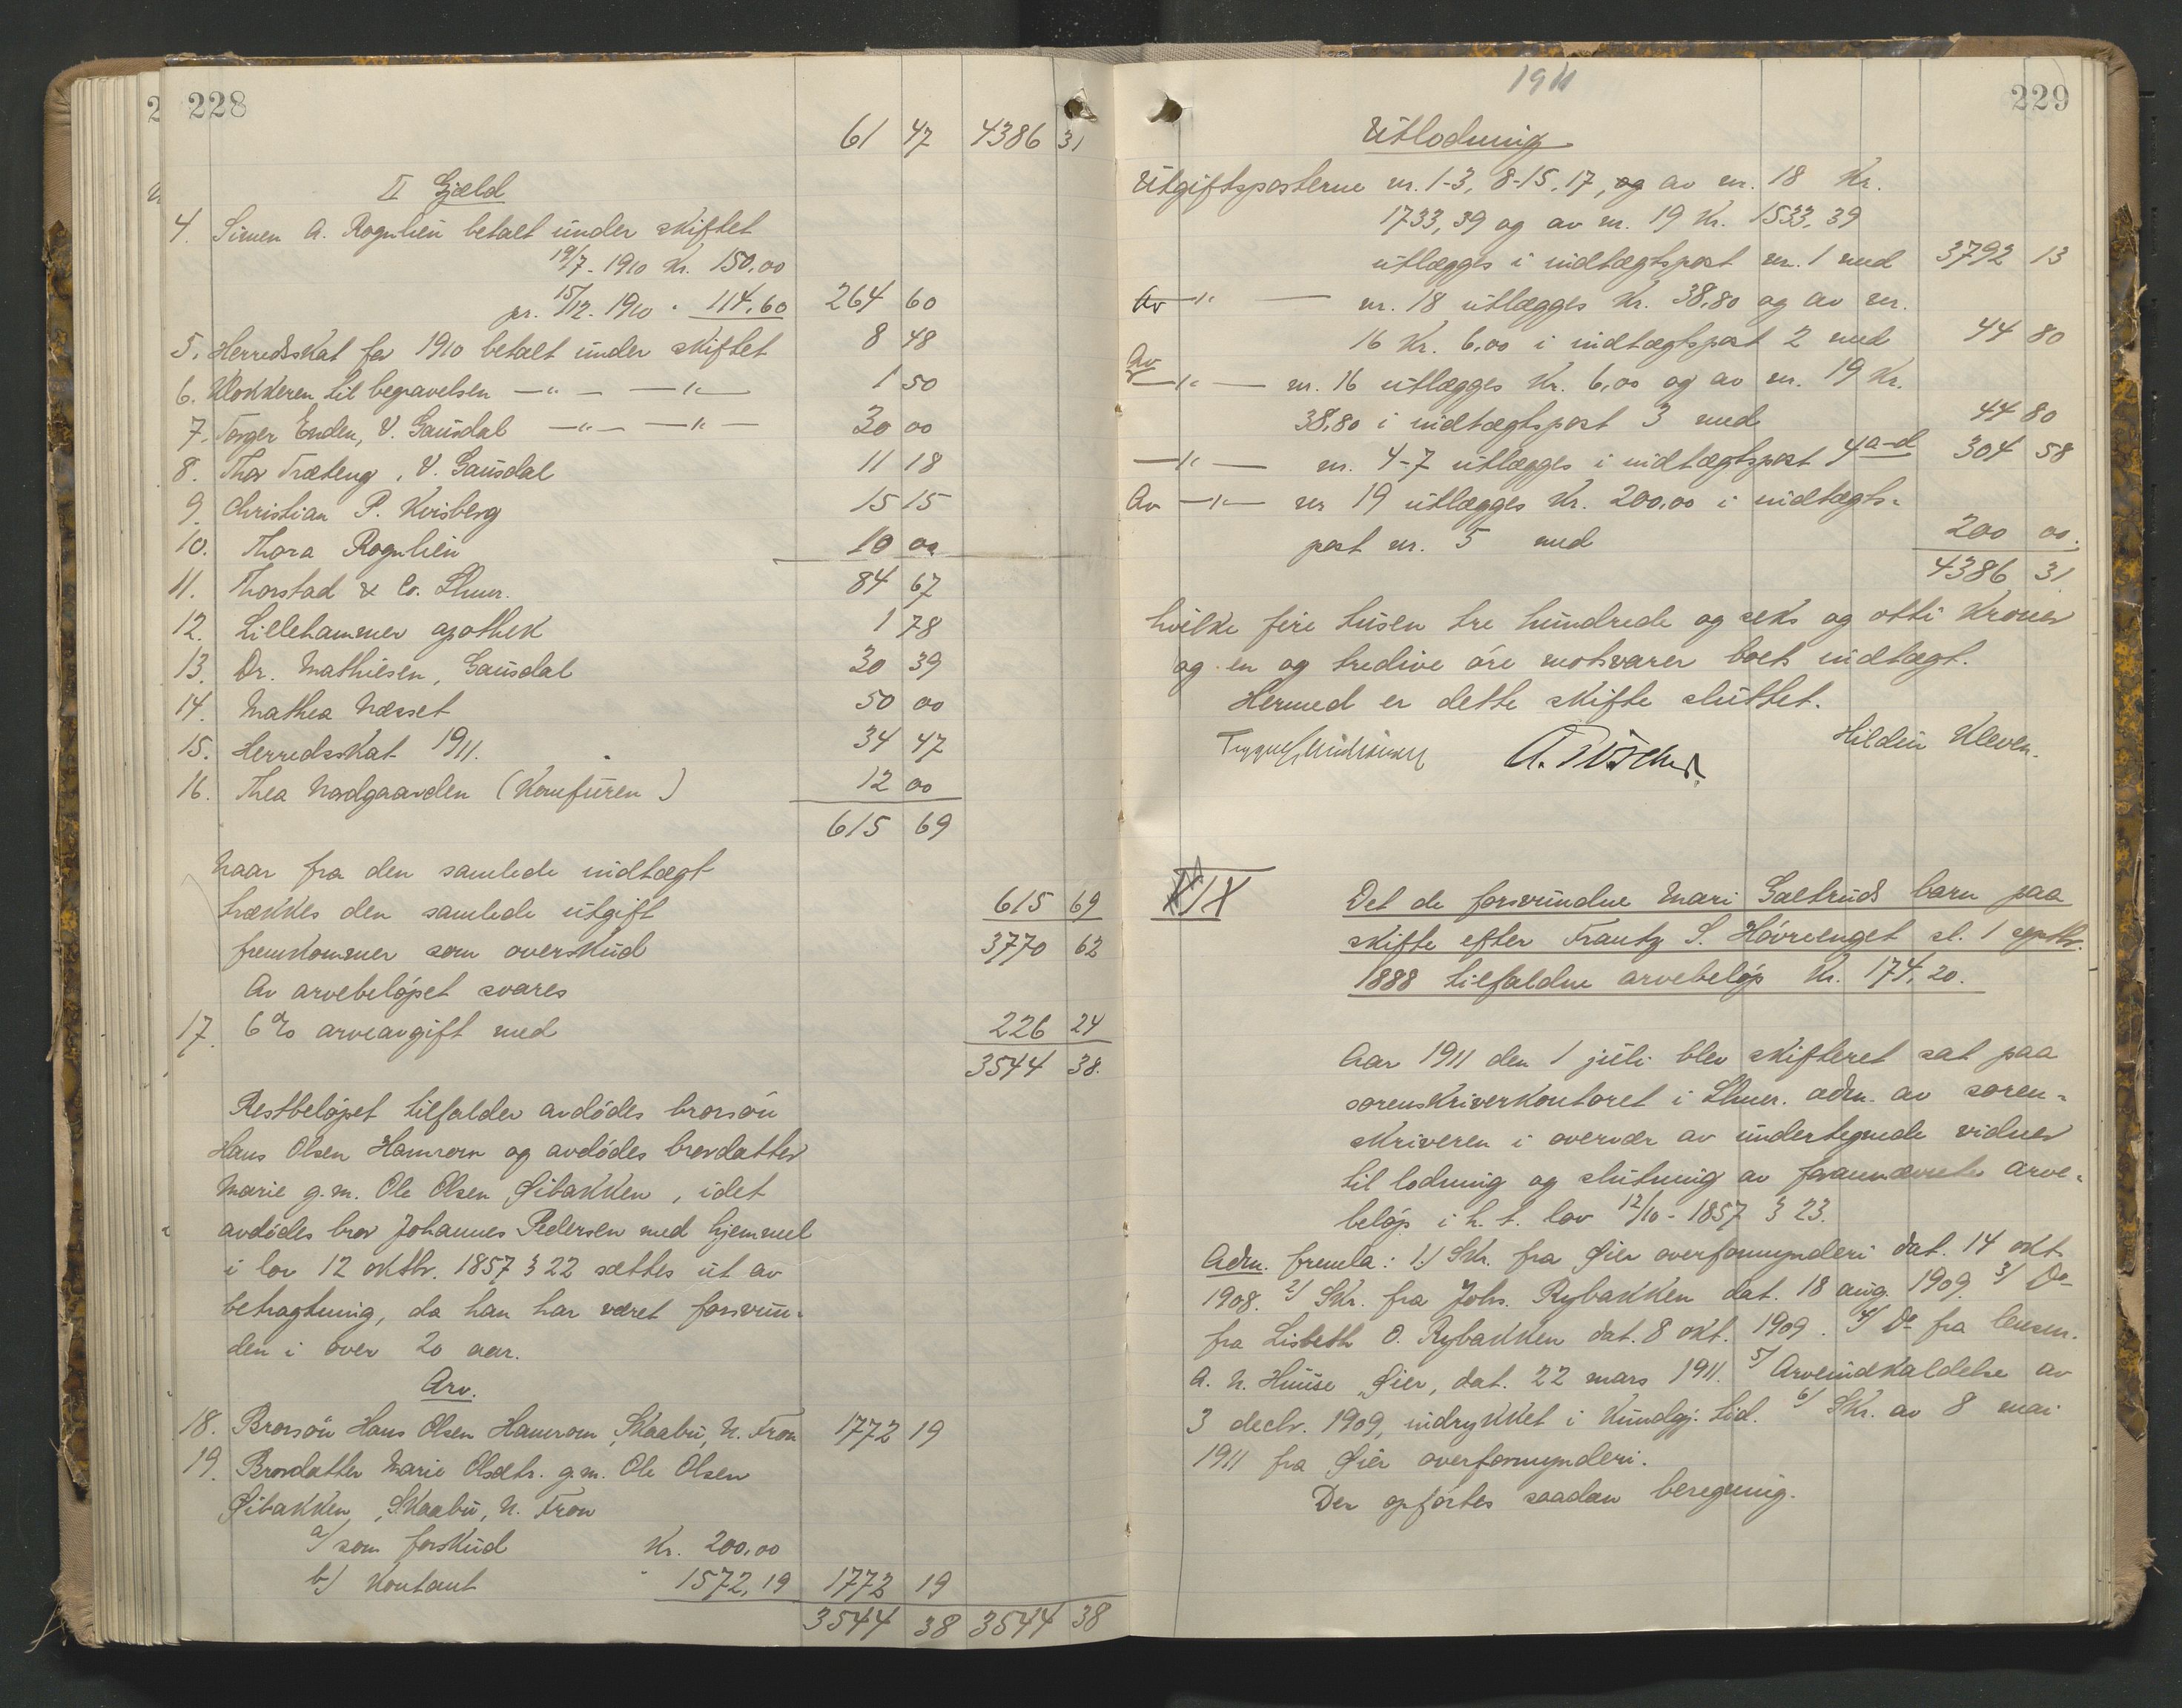 228
61 47 4386 31
II Gjæld
4. Simen A. Rognlien betalt under skiftet
19/7-1910 Kr. 150,00
pr. 15/12-1910 " 114,60 264 60
5. Herredsskat for 1910 betalt under skiftet 8 48
6. Klokkeren til begravelsen —"— —"— 1 50
7. Torger Enden, V. Gausdal —"— —"— 30 00
8. Thor Træteng, V. Gausdal 11 18
9. Christian P. Kvisberg 15 15
10. Thora Rognlien 10 00
11. Thorstad & Co. Lhmr. 84 67
12. Lillehammer apothek 1 78
13. Dr. Mathiesen, Gausdal 30 39
14. Mathea Næsset 50 00
15. Herredsskat 1911. 34 47
16. Thea Nordgaarden (Komfuren) 12 00
615 69
Naar fra den samlede indtægt
trækkes den samlede utgift 615 69
fremkommer som overskud 3770 62
Av arvebeløpet svares
17. 6% arveavgift med 226 24
3544 38.
Restbeløpet tilfalder avdødes brorsøn
Hans Olsen Hamrom og avdødes brordatter
Marie g.m. Ole Olsen Øibakken, idet
avdødes bror Johannes Pedersen med hjemmel
i lov 12 oktbr. 1857 § 22 sættes ut av
betragtning, da han har været forsvun-
den i over 20 aar.
Arv.
18. Brorsøn Hans Olsen Hamrom, Skaabu, N. Fron 1772 19
19. Brordatter Marie Olsdtr. g.m. Ole Olsen
Øibakken, Skaabu, N. Fron
a/ som forskud Kr. 200,00
b/ kontant " 1572,19 1772 19
3544 38 3544 38
1911
229
Utlodning
Utgiftsposterne nr. 1-3, 8-15, 17, og av nr. 18 Kr.
1733,39 og av nr. 19 Kr. 1533,39
utlægges i indtægtspost nr. 1 med 3792 13
Av —"— nr. 18 utlægges Kr. 38,80 og av nr.
16 Kr. 6,00 i indtægtspost 2 med 44 80
Av —"— nr. 16 utlægges Kr. 6,00 og av nr. 19 Kr.
38,80 i indtægtspost 3 med 44 80
—"— nr. 4-7 utlægges i indtægtspost 4 a-d 304 58
Av —"— nr 19 utlægges Kr. 200,00 i indtægts-
post nr. 5 med 200 00.
4386 31
hvilke fire tusen tre hundrede og seks og otti kroner
og en og tredive øre motsvarer boets indtægt.
Hermed er dette skifte sluttet.
Hildur Kleven.
XIX
Det de forsvundne Mari Galtruds barn paa
skifte efter Frantz S. Hövrenget sl. 1 septbr.
1888 tilfaldne arvebeløp Kr. 174,20.
Aar 1911 den 1 juli blev skifteret sat paa
sorenskriverkontoret i Lhmr. adm. av soren-
skriveren i overvær av undertegnede vidner
til lodning og slutning av foranævnte arve-
beløp i h.t. lov 12/10-1857 § 23.
Adm. fremla: 1/ Skr. fra Øier overformynderi dat. 14 okt.
1908. 2/ Skr. fra Johs. Rybakken dat. 18 aug. 1909. 3/ Do
fra Lisbeth O. Rybakken dat. 8 okt. 1909. 4/ Do fra lensm.
A. N. Huuse, Øier, dat. 22 mars 1911. 5/ Arveindkaldelse av
3 decbr. 1909, indrykket i Kundgj. tid. 6/ Skr. av 8 mai
1911 fra Øier overformynderi.
Der opførtes saadan beregning.